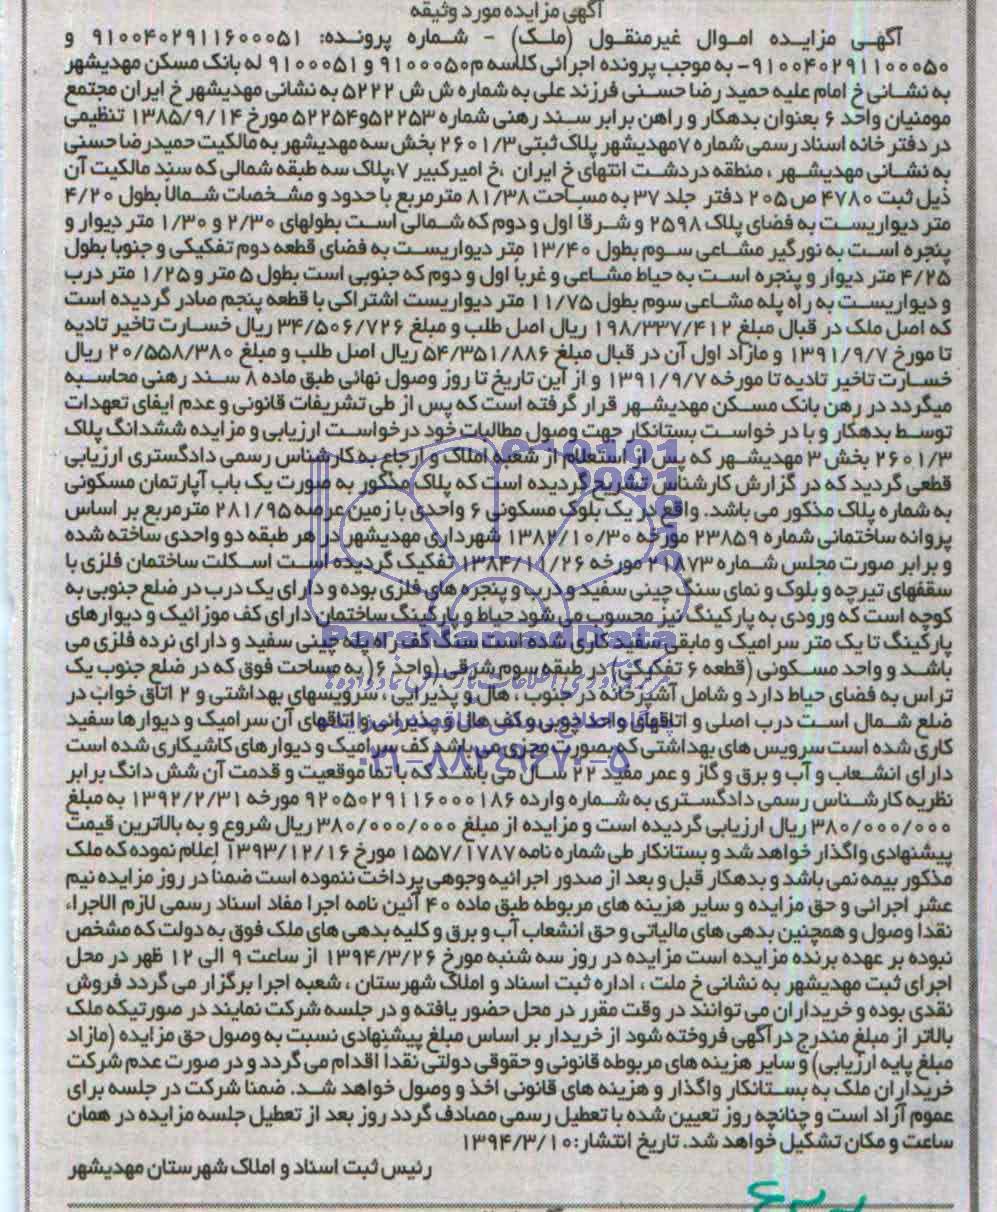 آگهی مزایده مورد وثیقه
آگهی مزایده اموال غیرمنقول (ملک) - شماره پرونده: ۹۱۰۰۴۰۲۹۱۱۶۰۰۰۵۱ و
۹۱۰۰۴۰۲۹۱۱۰۰۰۵۰- به موجب پرونده اجرائی کلاسه م۹۱۰۰۰۵۰ و ۹۱۰۰۰۵۱ له بانک مسکن مهدیشهر
به نشانی خ امام علیه حمید رضا حسنی فرزند علی به شماره ش ش ۵۲۲۲ به نشانی مهدیشهر خ ایران مجتمع
مومنیان واحد ۶ بعنوان بدهکار و راهن برابر سند رهنی شماره ۵۲۲۵۳و۵۲۲۵۴ مورخ ۱۳۸۵/۹/۱۴ تنظیمی
در دفتر خانه اسناد رسمی شماره ۷مهدیشهر پلاک ثبتی ۲۶۰۱/۳ بخش سه مهدیشهر به مالکیت حمیدرضا حسنی
به نشانی مهدیشهر ، منطقه دردشت انتهای خ ایران ،خ امیرکبیر ۷،پلاک سه طبقه شمالی که سند مالکیت آن
ذیل ثبت ۴۷۸۰ ص ۲۰۵ دفتر جلد ۳۷ به مساحت ۸۱/۳۸ مترمربع با حدود و مشخصات شمالا بطول ۴/۲۰
متر دیواریست به فضای پلاک ۲۵۹۸ و شرقا اول و دوم که شمالی است بطولهای ۲/۳۰ و ۱/۳۰ متر دیوار و
پنجره است به نورگیر مشاعی سوم بطول ۱۳/۴۰ متر دیواریست به فضای قطعه دوم تفکیکی و جنوبا بطول
۴/۲۵ متر دیوار و پنجره است به حیاط مشاعی و غربا اول و دوم که جنوبی است بطول ۵ متر و ۱/۲۵ متر درب
و دیواریست به راه پله مشاعی سوم بطول ۱۱/۷۵ متر دیواریست اشتراکی با قطعه پنجم صادر گردیده است
که اصل ملک در قبال مبلغ ۱۹۸/۳۳۷/۴۱۲ ریال اصل طلب و مبلغ ۳۴/۵۰۶/۷۲۶ ریال خسارت تاخیر تادیه
تا مورخ ۱۳۹۱/۹/۷ و مازاد اول آن در قبال مبلغ ۵۴/۳۵۱/۸۸۶ ریال اصل طلب و مبلغ ۲۰/۵۵۸/۳۸۰ ریال
خسارت تاخیر تادیه تا مورخه ۱۳۹۱/۹/۷ و از این تاریخ تا روز وصول نهائی طبق ماده ۸ سند رهنی محاسبه
میگردد در رهن بانک مسکن مهدیشهر قرار گرفته است که پس از طی تشریفات قانونی و عدم ایفای تعهدات
توسط بدهکار و با درخواست بستانکار جهت وصول مطالبات خود درخواست ارزیابی و مزایده ششدانگ پلاک
۲۶۰۱/۳ بخش ۳ مهدیشهر که پس از استعلام از شعبه املاک و ارجاع به کارشناس رسمی دادگستری ارزیابی
قطعی گردید که در گزارش کارشناس تشریح گردیده است که پلاک مذکور به صورت یک باب آپارتمان مسکونی
به شماره پلاک مذکور می باشد. واقع در یک بلوک مسکونی ۶ واحدی با زمین عرصه ۲۸۱/۹۵ مترمربع بر اساس
پروانه ساختمانی شماره ۲۳۸۵۹ مورخه ۱۳۸۲/۱۰/۳۰ شهرداری مهدیشهر در هر طبقه دو واحدی ساخته شده
و برابر صورت مجلس شماره ۲۱۸۷۳ مورخه ۱۳۸۴/۱۱/۲۶ تفکیک گردیده است اسکلت ساختمان فلزی با
سقفهای تیرچه و بلوک و نمای سنگ چینی سفید و درب و پنجره های فلزی بوده و دارای یک درب در ضلع جنوبی به
کوچه است که ورودی به پارکینگ نیز محسوب می شود حیاط و پارکینگ ساختمان دارای کف موزائیک و دیوارهای
پارکینگ تا یک متر سرامیک و مابقی سفید کاری شده است سنگ کف راه پله چینی سفید و دارای نرده فلزی می
باشد و واحد مسکونی (قطعه ۶ تفکیکی) در طبقه سوم شرقی (واحد ۶( به مساحت فوق که در ضلع جنوب یک
تراس به فضای حیاط دارد و شامل آشپزخانه در جنوب هال و پذیرایی ، سرویسهای بهداشتی و ۲ اتاق خواب در
ضلع شمال است درب اصلی و اتاقهای واحد چوبی و کف هال و پذیرائی و اتاقهای آن سرامیک و دیوارها سفید
کاری شده است سرویس های بهداشتی که بصورت مجزی می باشد کف سرامیک و دیوارهای کاشیکاری شده است
دارای انشعاب و آب و برق و گاز و عمر مفید ۲۲ سال می باشد که با تما موقعیت و قدمت آن شش دانگ برابر
نظریه کارشناس رسمی دادگستری به شماره وارده ۹۲۰۵۰۲۹۱۱۶۰۰۰۱۸۶ مورخه ۱۳۹۲/۲/۳۱ به مبلغ
۳۸۰/۰۰۰/۰۰۰ ریال ارزیابی گردیده است و مزایده از مبلغ ۳۸۰/۰۰۰/۰۰۰ ریال شروع و به بالاترین قیمت
پیشنهادی واگذار خواهد شد و بستانکار طی شماره نامه ۱۵۵۷/۱۷۸۷ مورخ ۱۳۹۳/۱۲/۱۶ اعلام نموده که ملک
مذکور بیمه نمی باشد و بدهکار قبل و بعد از صدور اجرائیه وجوهی پرداخت ننموده است ضمنا در روز مزایده نیم
عشر اجرائی و حق مزایده و سایر هزینه های مربوطه طبق ماده ۴۰ آئین نامه اجرا مفاد اسناد رسمی لازم الاجرا،
نقدا وصول و همچنین بدهی های مالیاتی و حق انشعاب آب و برق و کلیه بدهی های ملک فوق به دولت که مشخص
نبوده بر عهده برنده مزایده است مزایده در روز سه شنبه مورخ ۱۳۹۴/۳/۲۶ از ساعت ۹ الی ۱۲ ظهر در محل
اجرای ثبت مهدیشهر به نشانی خ ملت ، اداره ثبت اسناد و املاک شهرستان ، شعبه اجرا برگزار می گردد فروش
نقدی بوده و خریداران می توانند در وقت مقرر در محل حضور یافته و در جلسه شرکت نمایند در صورتیکه ملک
بالاتر از مبلغ مندرج در آگهی فروخته شود از خریدار بر اساس مبلغ پیشنهادی نسبت به وصول حق مزایده (مازاد
مبلغ پایه ارزیابی) و سایر هزینه های مربوطه قانونی و حقوقی دولتی نقدا اقدام می گردد و در صورت عدم شرکت
خریداران ملک به بستانکار واگذار و هزینه های قانونی اخذ و وصول خواهد شد. ضمنا شرکت در جلسه برای
عموم آزاد است و چنانچه روز تعیین شده با تعطیل رسمی مصادف گردد روز بعد از تعطیل جلسه مزایده در همان
ساعت و مکان تشکیل خواهد شد. تاریخ انتشار:۱۳۹۴/۳/۱۰
رئیس ثبت اسناد و املاک شهرستان مهدیشهر
ParsNamadData
۰۲۱-۸۸۳۴۹۶۷۰-۵